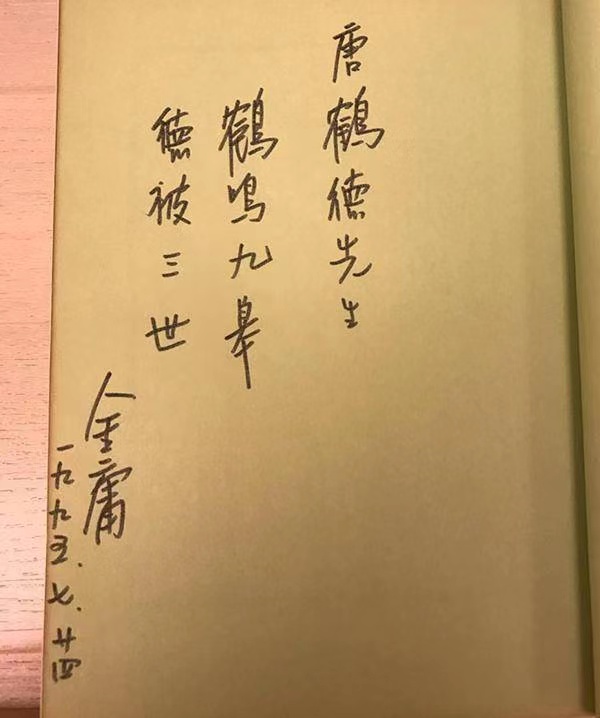 唐鶴德先生
鶴鳴九皋
德被三世
金庸
一九九五.七.廿四